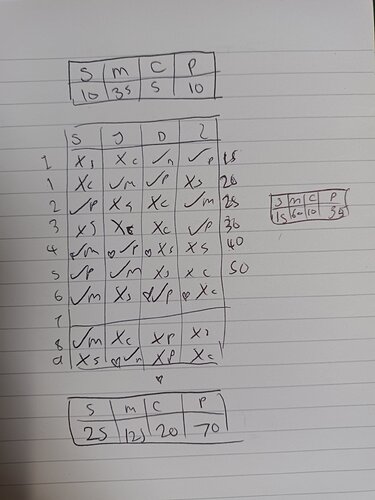 S M C P
10 35 5 10
S J D Z
1 Xs Xc ✓n ✓p 15
1 Xc ✓m ✓p Xs 20
2 ✓p Xs Xc ✓m 25
3 Xs Xc ✓p 30
4 ✓m ♡✓p ♡Xs Xs 40
5 ✓p ✓m Xs Xc 50
6 ✓m Xs ✓p ♡Xc
7
8 ✓m Xc Xp Xs
9 Xs ♡✓n Xp Xc
♡
S M C P
15 60 10
S M C P
25 125 20 70